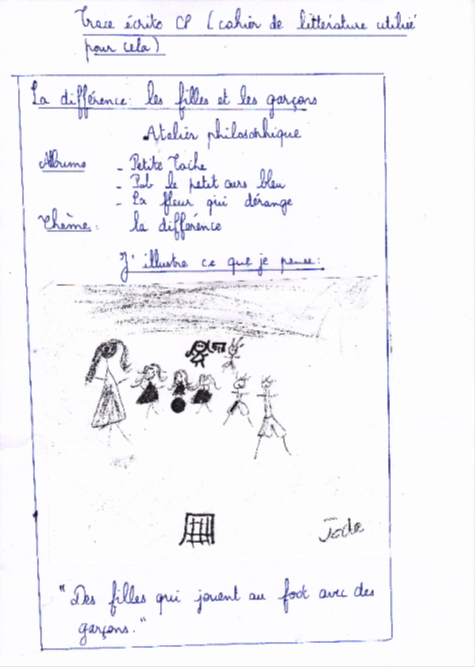 Trace écrite CP (cahier de littérature utilisé
pour cela)
La différence: les filles et les garçons
Atelier philosophique
Albums - Petite Tache
- Pab le petit ours bleu
- La fleur qui dérange
Thème: la différence
J'illustre ce que je pense:
Jade
"Des filles qui jouent au foot avec des
garçons."